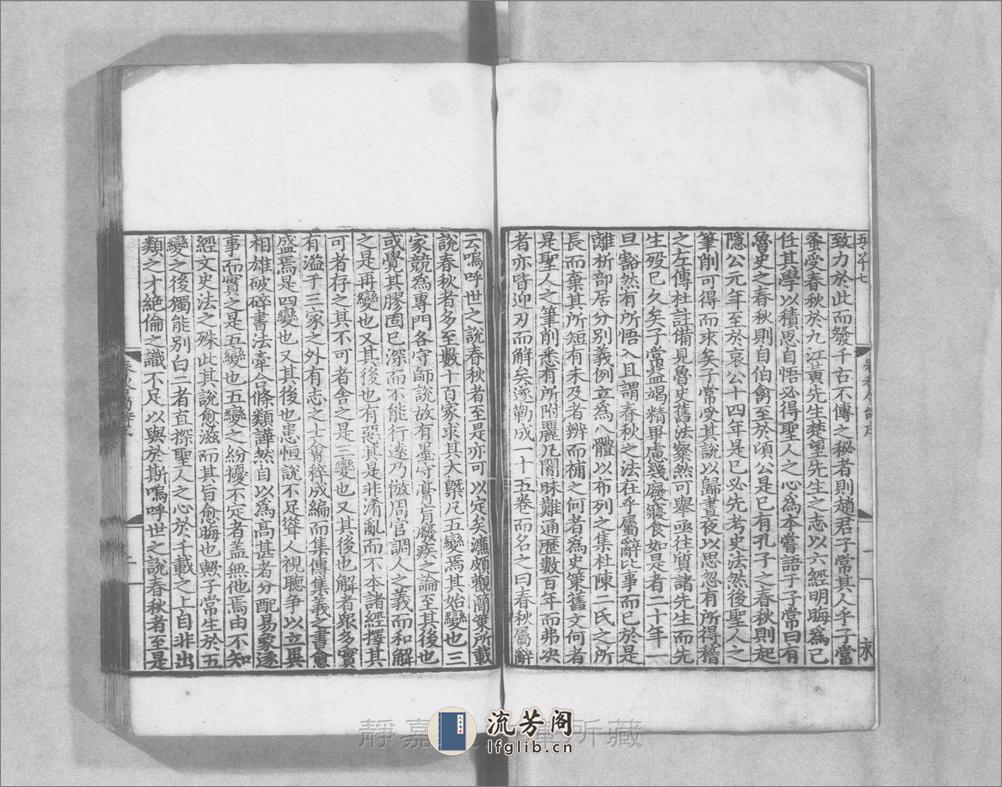 致力於此而發千古不傳之秘者則趙君子常其人乎子常
蚤受春秋於九江黃先生楚望先生之志以六經明晦為己
任其學以積思自悟必得聖人之心為本嘗語子常曰有
魯史之春秋則自伯禽至於頃公是已有孔子之春秋則起
隱公元年至於哀公十四年是已必先考史法然後聖人之
筆削可得而求矣子常受其說以歸晝夜以思忽有所得稽
之左傳杜註備見魯史舊法粲然可舉亟往質諸先生而先
生歿已久矣子常益竭精畢慮幾廢寢食如是者二十年一
旦豁然有所悟入且謂春秋之法在乎屬辭比事而已於是
離析部居分別義例立為八體以布列之集杜陳二氏之所
長而棄其所短有未及者辨而補之何者為史策舊文何者
是聖人之筆削悉有所附麗凡闇昧難通歷數百年而弗決
者亦皆迎刃而解矣遂勒成一十五卷而名之曰春秋屬辭
云嗚呼世之說春秋者至是亦可以定矣濂頗觀簡策所載
說春秋者多至數十百家求其大槩凡五變焉其始變也三
家競為專門各守師說故有墨守膏肓廢疾之論至其後也
或覺其膠固已深而不能行遠乃倣周官調人之義而和解
之是再變也又其後也有惡其是非淆亂而不本諸經擇其
可者存之其不可者舍之是三變也又其後也解者衆多實
有溢于三家之外有志之士會稡成編而集傳集義之書愈
盛焉是四變也又其後也患恒說不足聳人視聽争以立異
相雄破碎書法牽合條類譁然自以為高甚者分配易象逐
事而實之是五變也五變之紛擾不定者盖無他焉由不知
經文史法之殊此其說愈滋而其旨愈晦也歟子常生於五
變之後獨能別白二者直探聖人之心於千載之上自非出
類之才絶倫之識不足以與於斯嗚呼世之說春秋者至是
流芳阁
lfglib.cn